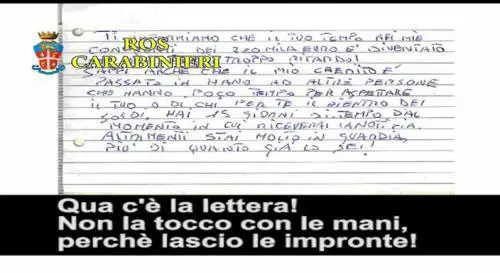 TI INFORMIAMO CHE IL TUO TEMPO NEI MIE
CONFRONTI DEI 220 MILA EURO E' DIVENTATO
TROPPO RITARDO!
ROS
CARABINIERI
SAPPI ANCHE CHE IL MIO CREDITO E'
PASSATO IN MANO AD ALTRE PERSONE
CHE HANNO POCO TEMPO PER ASPETTARE
IL TUO O DI CHI PER TE IL RIENTRO DEI
SOLDI. HAI 15 GIORNI DI TEMPO DAL
MOMENTO IN CUI RICEVERAI LA NOTIZIA.
ALTRIMENTI STAI MOLTO IN GUARDIA,
PIU' DI QUANTO GIÀ LO SEI!
Qua c'è la lettera!
Non la tocco con le mani,
perchè lascio le impronte!